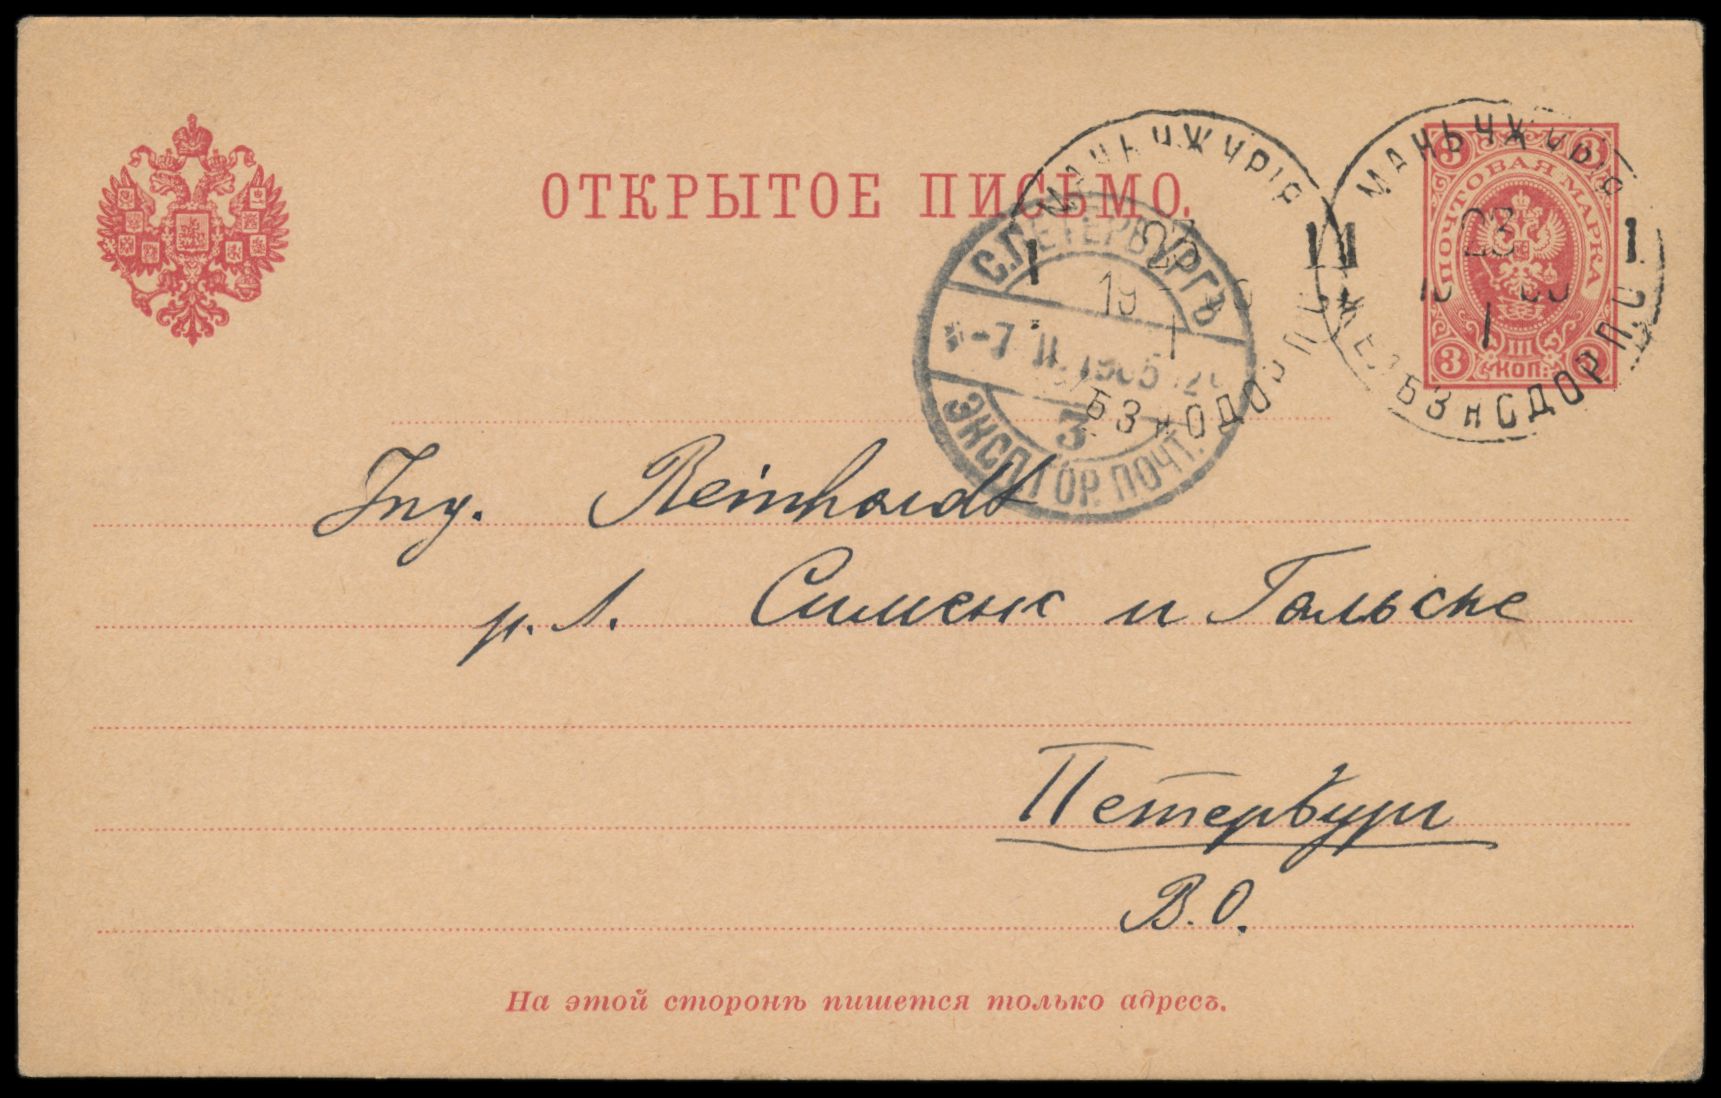 ОТКРЫТОЕ ПИСЬМО.
ПОЧТОВАЯ МАРКА
3 3
3 КОП: 3
МАНЬЧЖУРІЯ
23
1 1
1
ЖЕЛБЗНОДОР П.О
МАНЬЧЖУРІЯ
1
19
1
БЗНОДОР П
С.ПЕТЕРБУРГЪ
-7. II. 1905
3
ЭКСП.ГОР. ПОЧТ.
Ing. Reinhardt
р. Л. Сименс и Гальске
Петербург
В.О.
На этой сторонѣ пишется только адресъ.